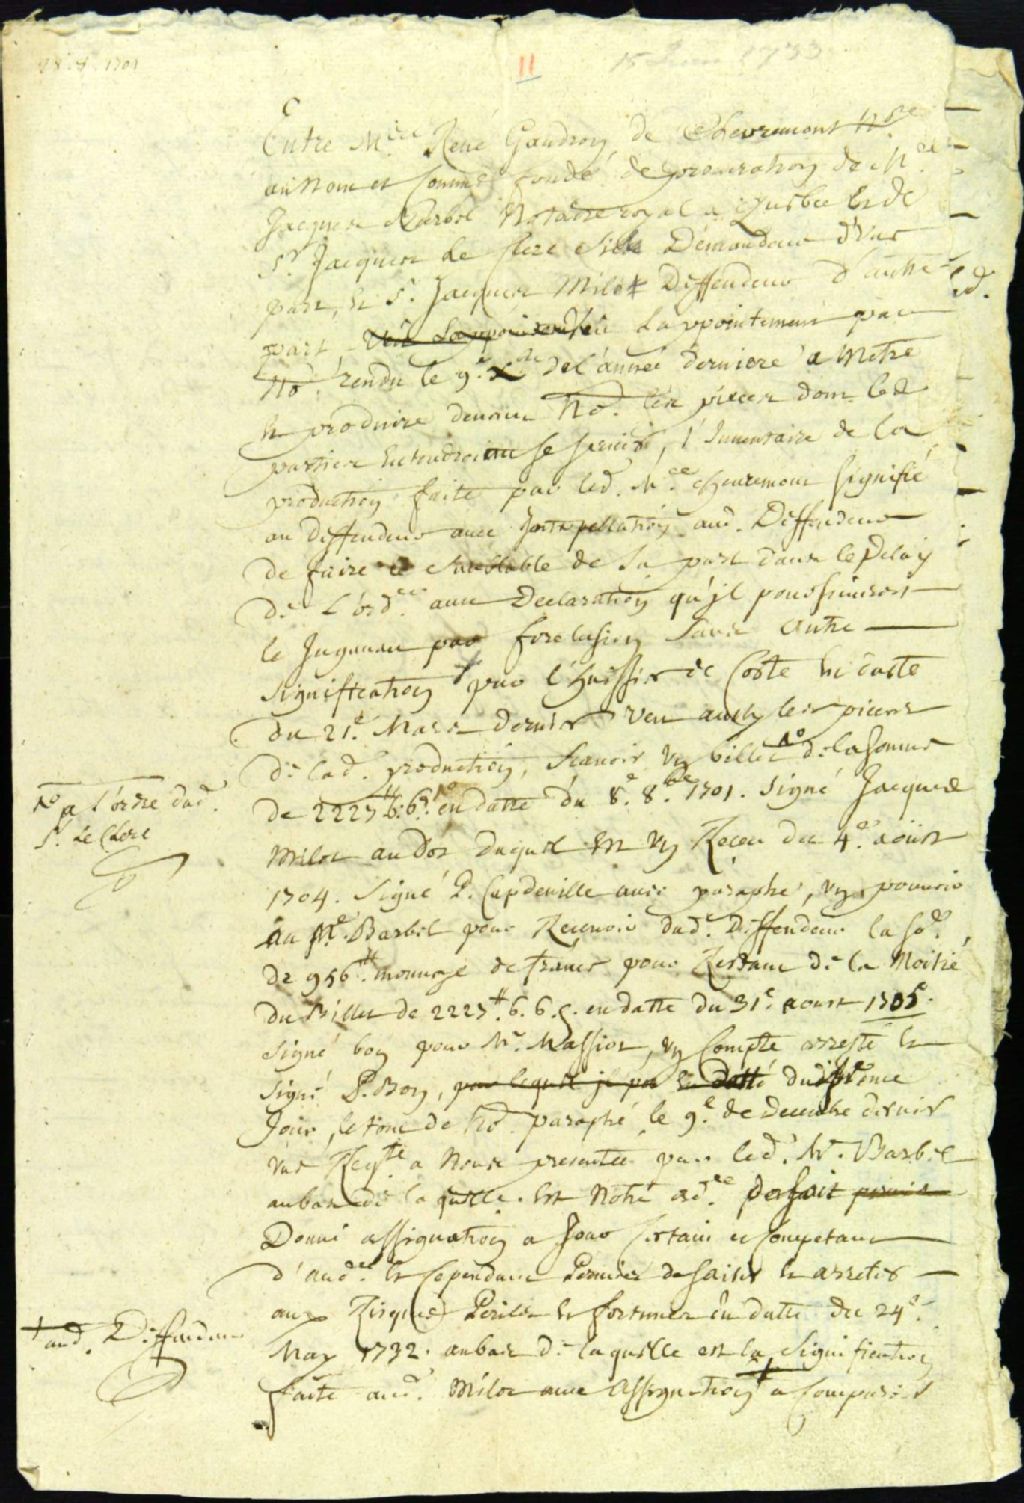 18. 8. 1701
11
15 Juin 1733
Entre Mre René Gaudron de Chevremont Nre
au Nom et Comme fondé de procuration de Me
Jacques Barbel Notaire royal a Quebec Et de
Sr Jacques Le Clerc Demandeur d'Une
part, Et Sr. Jacques Milot Deffendeur D'autre
part Lappointement par
No. rendu le 9e. Xbre de l'année derniere a Mettre
Et produire devant No. les pieces dont les
parties Entendroient se servir, l'Inventaire de la
production faitte par led. Me. Chevremont signifié
au deffendeur avec Interpellation aud. Deffendeur
de faire le semblable de sa part dans le Delay
de L'ordce. avec Declaration qu'jl poursuivroit
le Jugement par forclusion sans autre
signification par l'huissier de Coste En datte
du 21e. Mars dernier Veu aussy les pieces
de lad. production, Scavoir un billet de la somme
de 2223# 6. 6 en datte du 8e. 8bre 1701. signé Jacques
Milot au dos duquel Est un Receu du 4e. aoust
1704. Signé P. Capdeville avec paraphe, un pouvoir
au Me. Barbel pour Recevoir dud. Deffendeur la so.
de 956# monnoye de france pour Restant de la Moitié
du Billet de 2223# 6. 6. en datte du 31e. aoust 1705.
Signé bon pour Mr. Massiot, un Compte arresté Et
signé P. Bon, par lequel jl par Et datté du
Jour, le tout de No. paraphé le 9e. de decembre dernier
Une Reqte a Nous presentée par led. Mr. Barbel
au bas de laquelle Est Notre ordce.
Donné assignation a Jour Certain et Competant
d'audce. Et Cependant Permis de saisir Et arreter
aux Risques Perils Et fortunes En datte du 24e.
May 1732. au bas de laquelle est la Signification
faite aud. Milot avec assignation a Comparoir
No a l'ordre dud.
Sr. Le Clerc
+ aud. Deffendeur